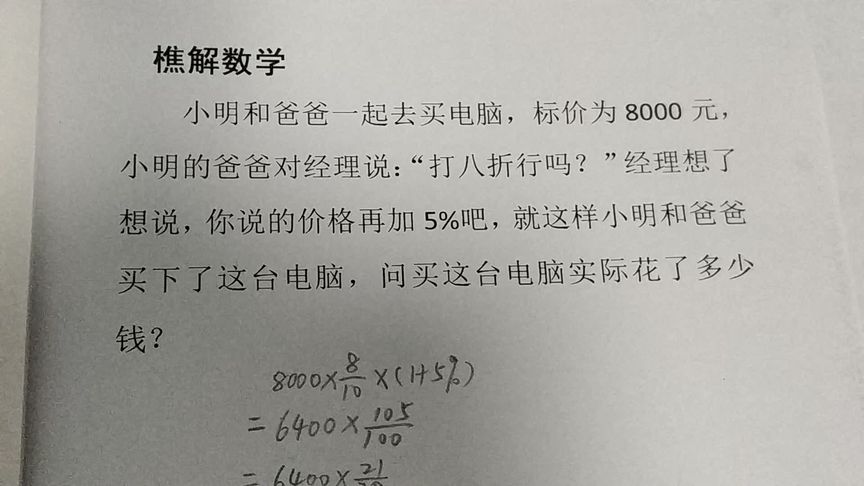 樵解数学
小明和爸爸一起去买电脑，标价为 8000 元，
小明的爸爸对经理说：“打八折行吗？”经理想了
想说，你说的价格再加 5%吧，就这样小明和爸爸
买下了这台电脑，问买这台电脑实际花了多少
钱？
8000×8/10×(1+5%)
=6400×105/100
=6400×21/20